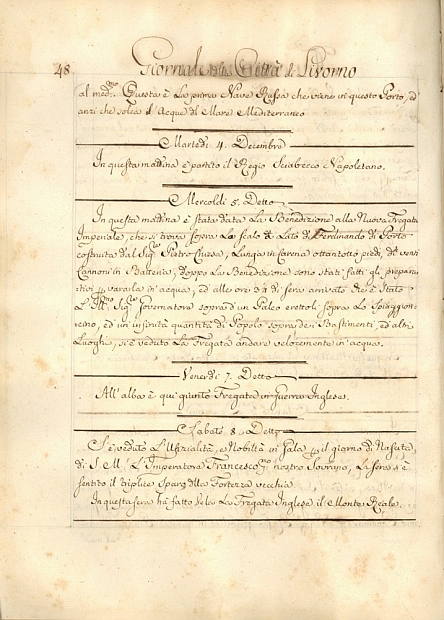 48 Giornale della Città di Livorno
al med.mo Questa è La prima Nave Russa che viene in questo Porto, ed
anzi che solca il Acque del Mare Mediterraneo
Martedì 4. Decembre
In questa mattina è partito il Regio Sciabecco Napoletano.
Mercoldì 5. Detto
In questa mattina è stata data La Benedizione alla Nuova Fregata
Imperiale, che si trova sopra Lo scalo di Lato di Ferdinando di Porto
costruita dal Sig.re Pietro Chiesa, Lunga in Carena ottantotto piedi, di venti
Cannoni in Batteria, doppo La Benedizione sono stati fatti gli prepara
tivi p. vararla in acqua, ed alle ore 3 di sera arrivato che è Stato
L'Ill.mo Sig.re Governatore sopra d'un Palco erettoli sopra Lo Spiaggion
ed un infinita quantità di Popolo sopra de i Bastimenti, ed altri
Luoghi, si è veduto La Fregata andare velocemente in acqua.
Venerdì 7. Detto
All'alba è qui giunto Fregata in guerra Inglese.
Sabato 8. Detto
S'è veduto L'Ufizialità, e Nobiltà in Gala p. il giorno di Nascita
di S. M. L'Imperatore Francesco p.mo nostro Sovrano, La sera s'è
sentito il triplice sparo della Fortezza vecchia
In questa sera hà fatto Vela La Fregata Inglese il Monte Reale.